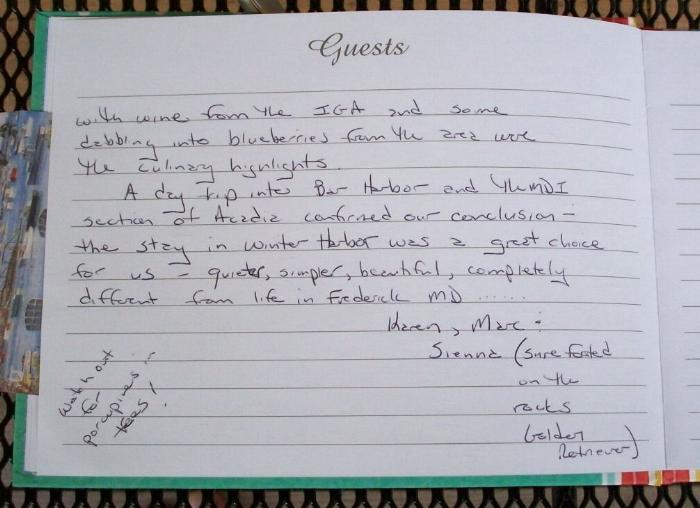 Guests
with wine from the IGA and some
dabbling into blueberries from the area were
the culinary highlights.
A day trip into Bar Harbor and the MDI
section of Acadia confirmed our conclusion -
the stay in Winter Harbor was a great choice
for us - quieter, simpler, beautiful, completely
different from life in Frederick MD ......
Karen, Marc &
Sienna (sure footed
on the
rocks
Golden
Retriever)
Watch out
for
porcupines &
fleas!